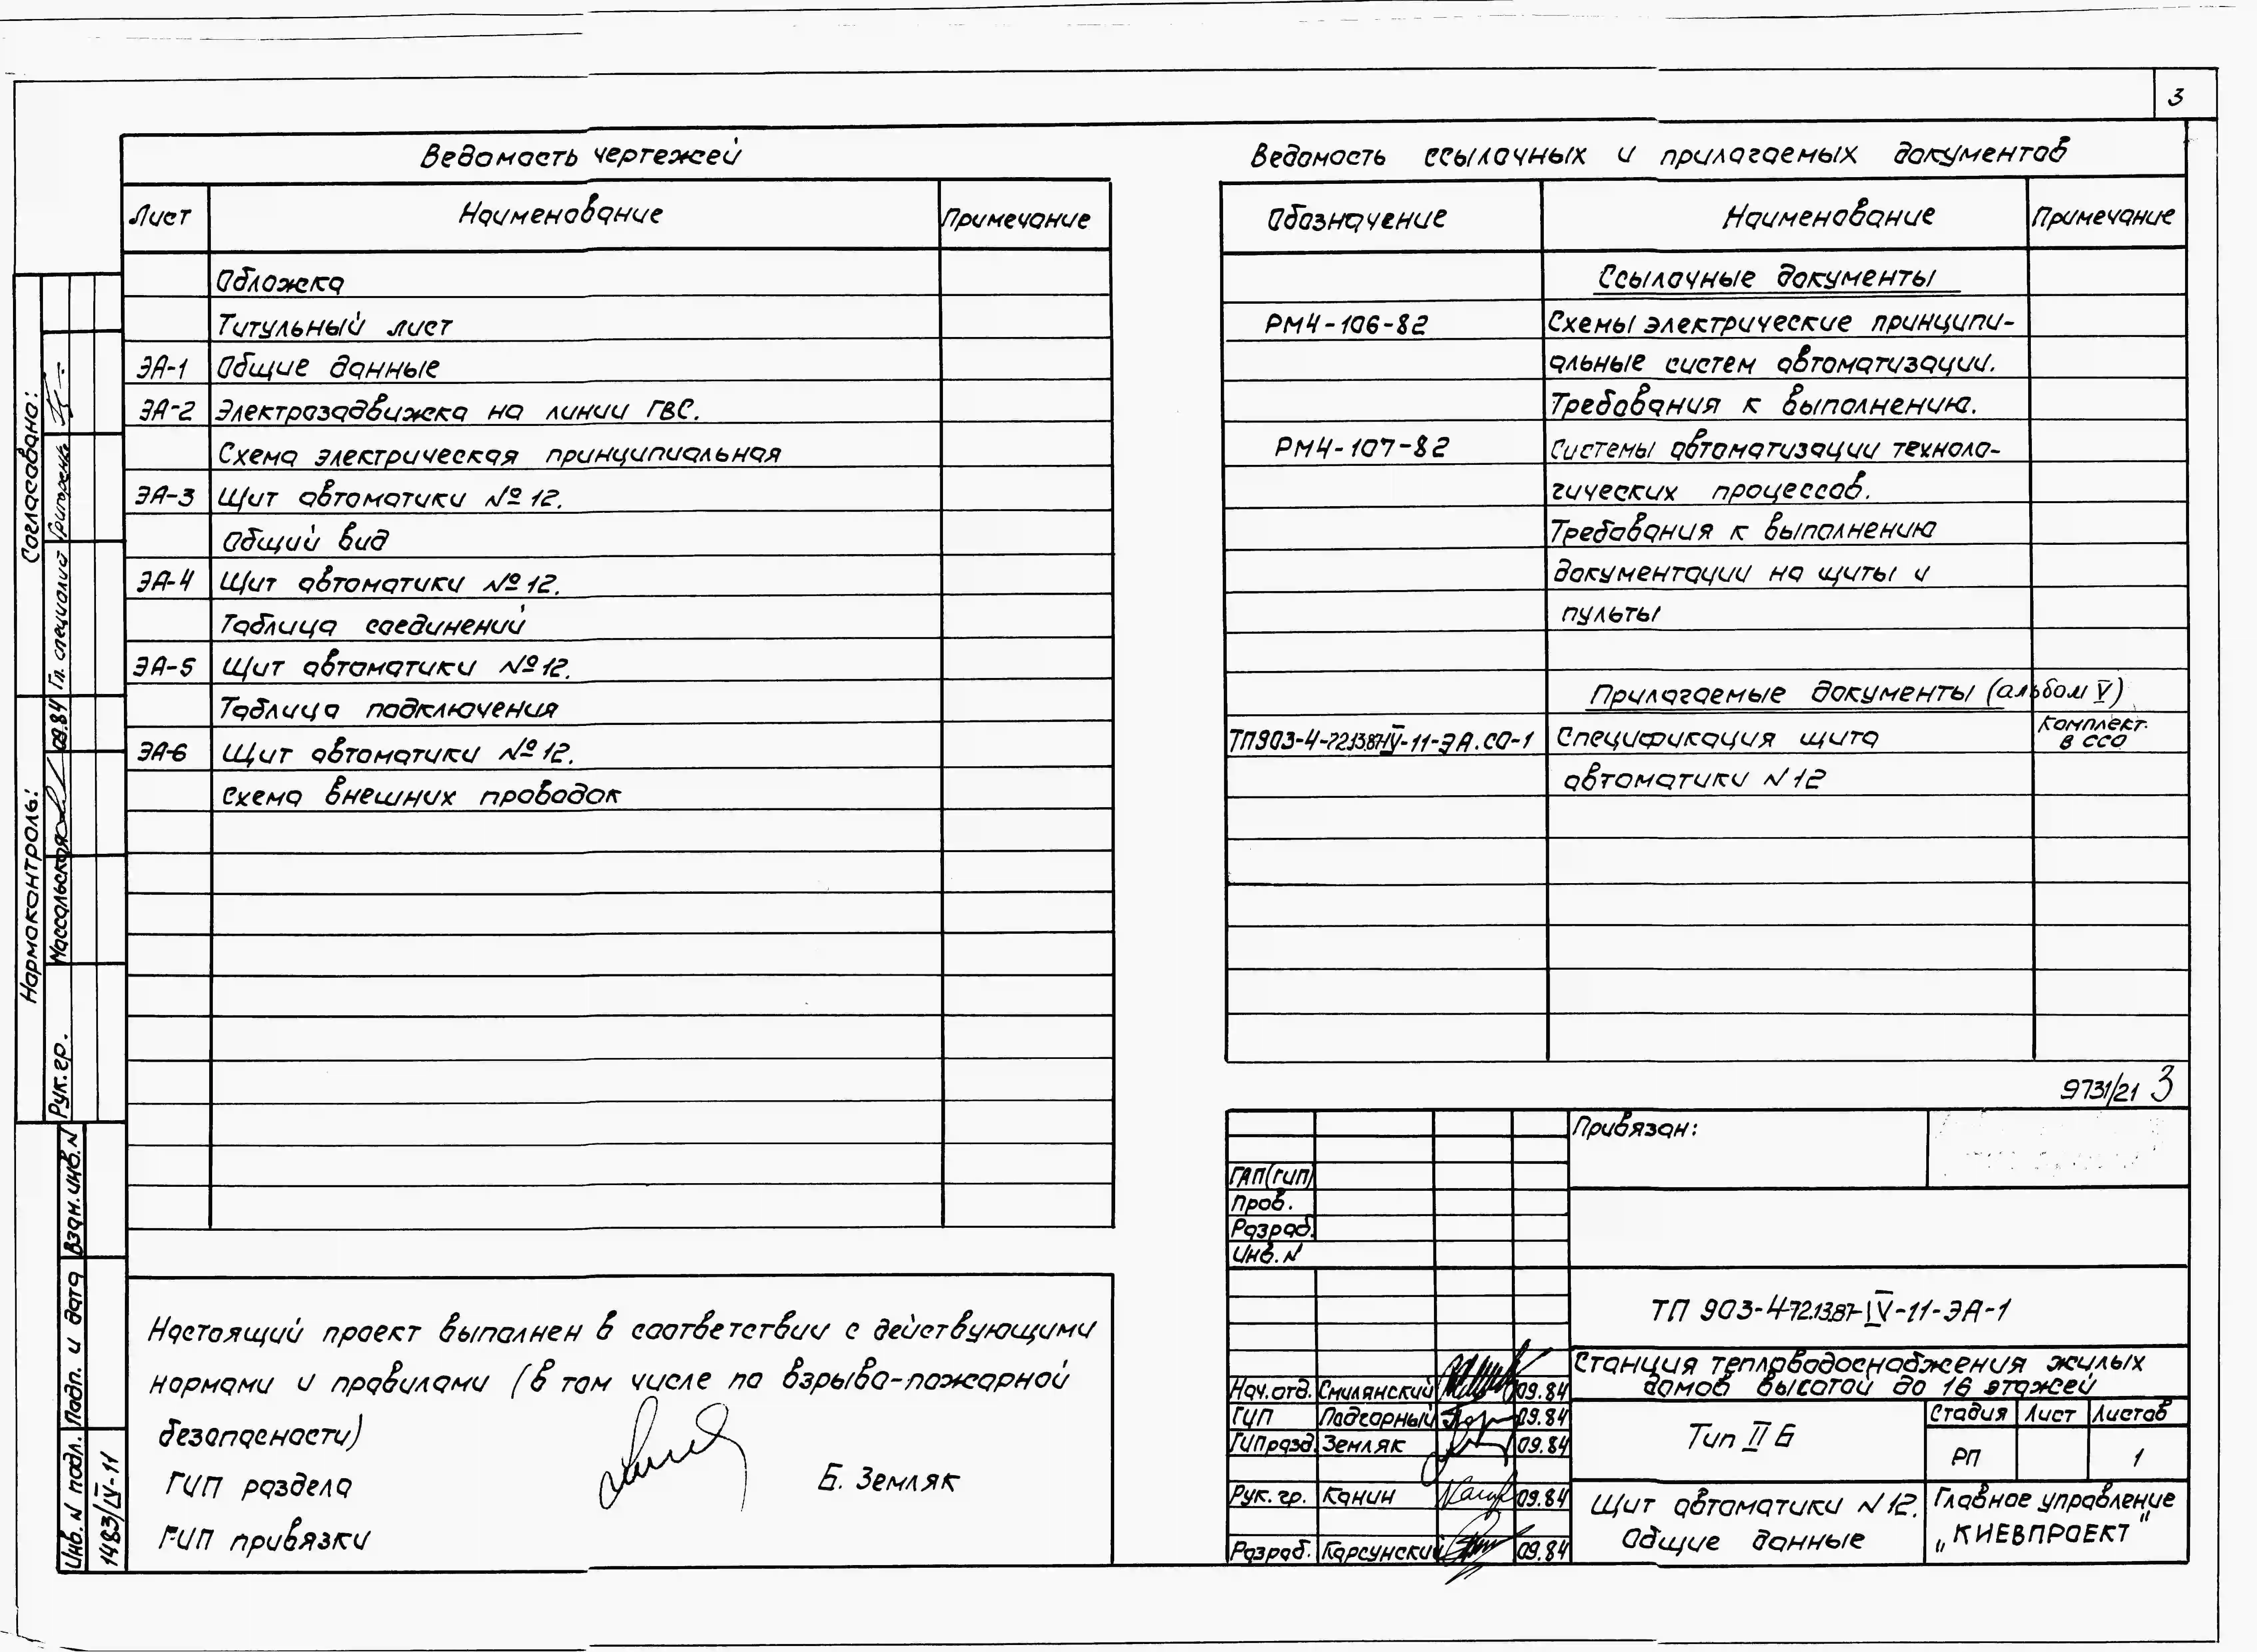 3
Ведомость чертежей
Лист Наименование Примечание
Обложка
Титульный лист
ЭА-1 Общие данные
ЭА-2 Электрозадвижка на линии ГВС.
Схема электрическая принципиальная
ЭА-3 Щит автоматики №12.
Общий вид
ЭА-4 Щит автоматики №12.
Таблица соединений
ЭА-5 Щит автоматики №12.
Таблица подключения
ЭА-6 Щит автоматики №12.
схема внешних проводок
Ведомость ссылочных и прилагаемых документов
Обозначение Наименование Примечание
Ссылочные документы
РМ4-106-82 Схемы электрические принципи-
альные систем автоматизации.
Требования к выполнению.
РМ4-107-82 Системы автоматизации техноло-
гических процессов.
Требования к выполнению
документации на щиты и
пульты
Прилагаемые документы (альбом V)
ТП903-4-72.13.87-IV-11-ЭА.СО-1 Спецификация щита комплект. в ССО
автоматики N12
9731/21 3
Настоящий проект выполнен в соответствии с действующими
нормами и правилами (в том числе по взрыво-пожарной
безопасности)
ГИП раздела Б. Земляк
ГИП привязки
Согласовано:
Гл. специалист Григоренко
Нормоконтроль:
Рук. гр. Массальская 09.84
Взан. инв. N
Подп. и дата
Инв. N подл. 1483/IV-11
Привязан:
ГАП(ГИП)
Пров.
Разраб.
Инв. N
ТП 903-4-72.13.87-IV-11-ЭА-1
Станция тепловодоснабжения жилых
домов высотой до 16 этажей
Нач. отд. Смилянский 09.84
ГИП Подгорный 09.84
ГИП разд. Земляк 09.84
Рук. гр. Канин 09.84
Разраб. Карсунский 09.84
Тип II Б
Стадия Лист Листов
РП 1
Щит автоматики N12.
Общие данные
Главное управление
„КИЕВПРОЕКТ"